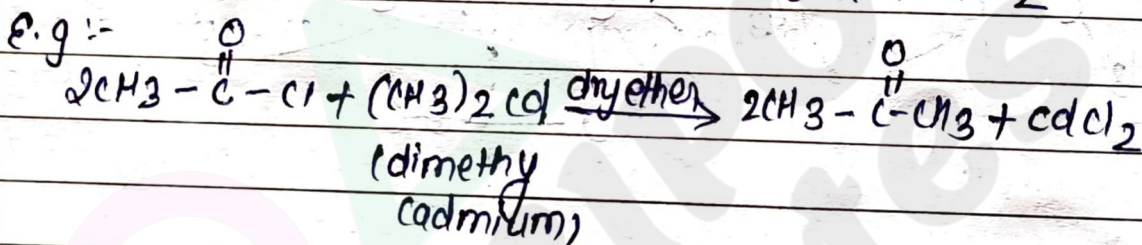 E.g :-
O O
|| ||
2CH3 - C - Cl + (CH3)2 Cd dry ether → 2CH3 - C - CH3 + CdCl2
(dimethy
Cadmium)